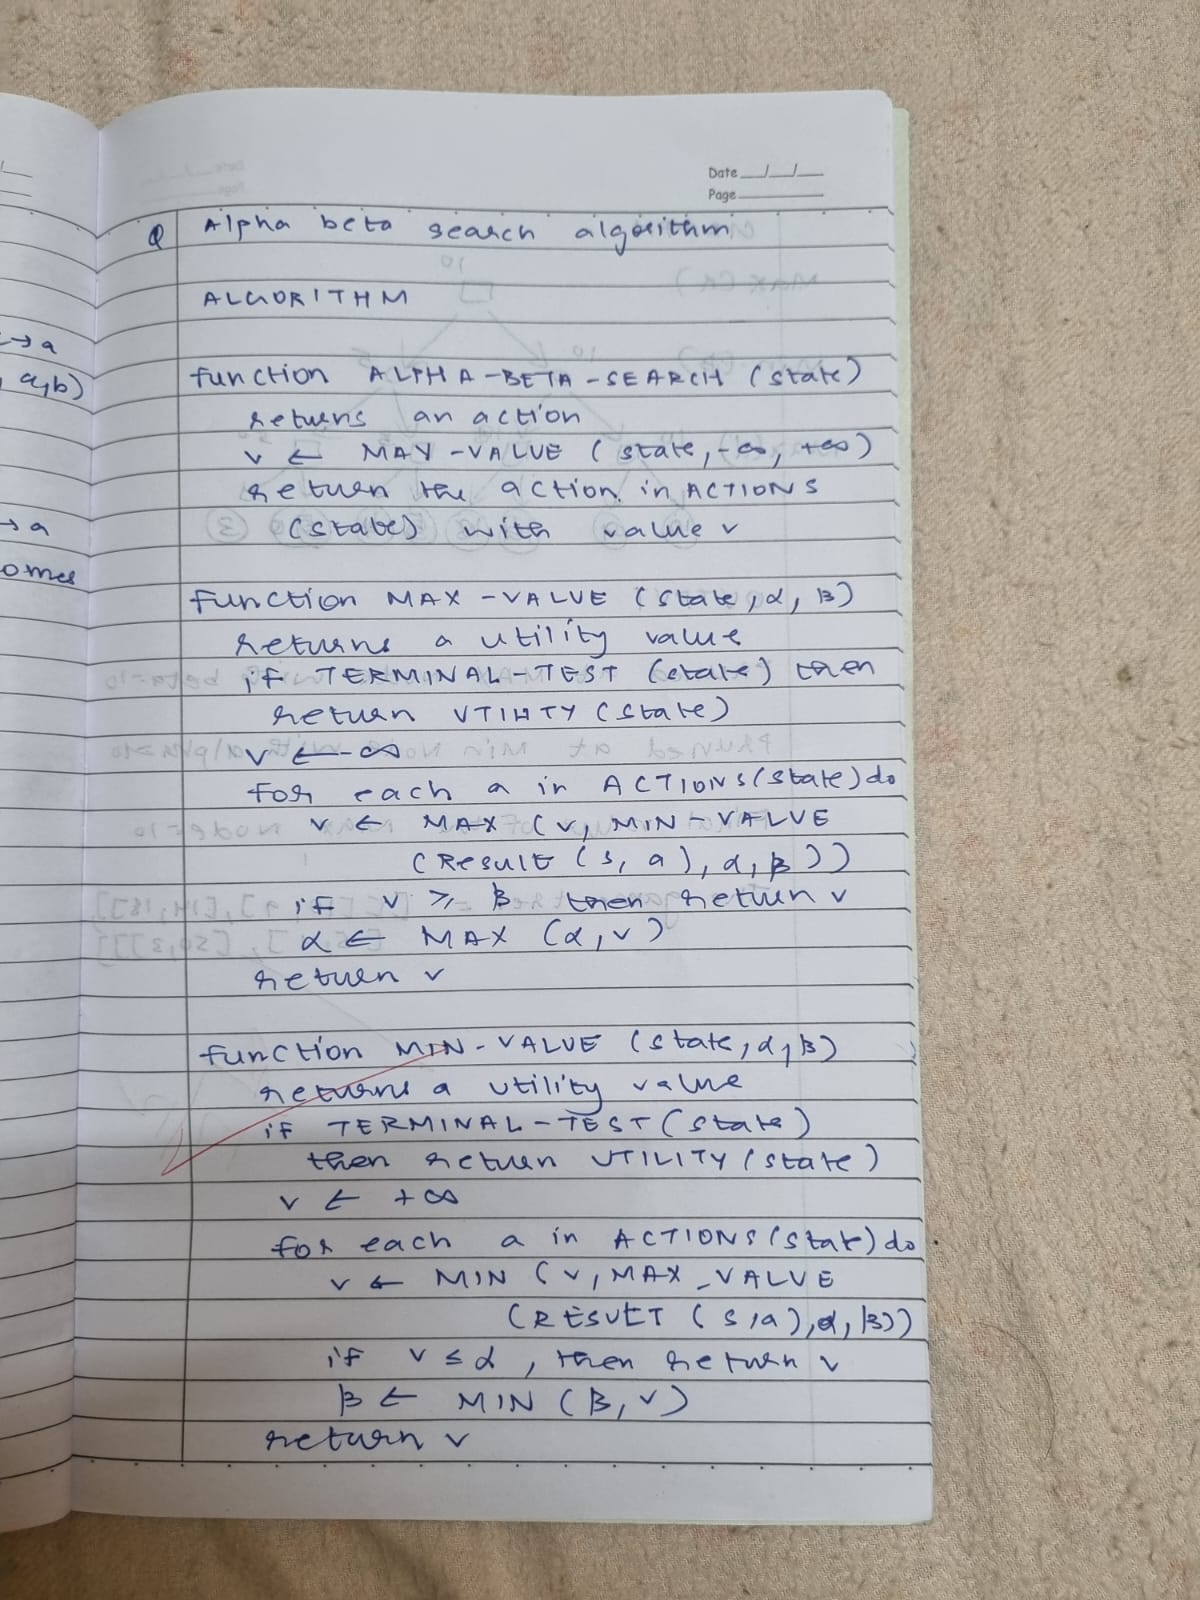 Date __/__/__
Page
Q Alpha beta search algorithm
ALGORITHM
function ALPHA-BETA-SEARCH (state)
returns an action
v ← MAX-VALUE (state, -∞, +∞)
return the action in ACTIONS
(state) with value v
function MAX-VALUE (state, α, β)
returns a utility value
if TERMINAL-TEST (state) then
return UTILITY (state)
v ← -∞
for each a in ACTIONS (state) do
v ← MAX (v, MIN-VALUE
(Result (s, a), α, β))
if v ≥ β then return v
α ← MAX (α, v)
return v
function MIN-VALUE (state, α, β)
returns a utility value
if TERMINAL-TEST (state)
then return UTILITY (state)
v ← +∞
for each a in ACTIONS (state) do
v ← MIN (v, MAX_VALUE
(RESULT (s, a), α, β))
if v ≤ α, then return v
β ← MIN (β, v)
return v
→a
a,b)
→a
omes